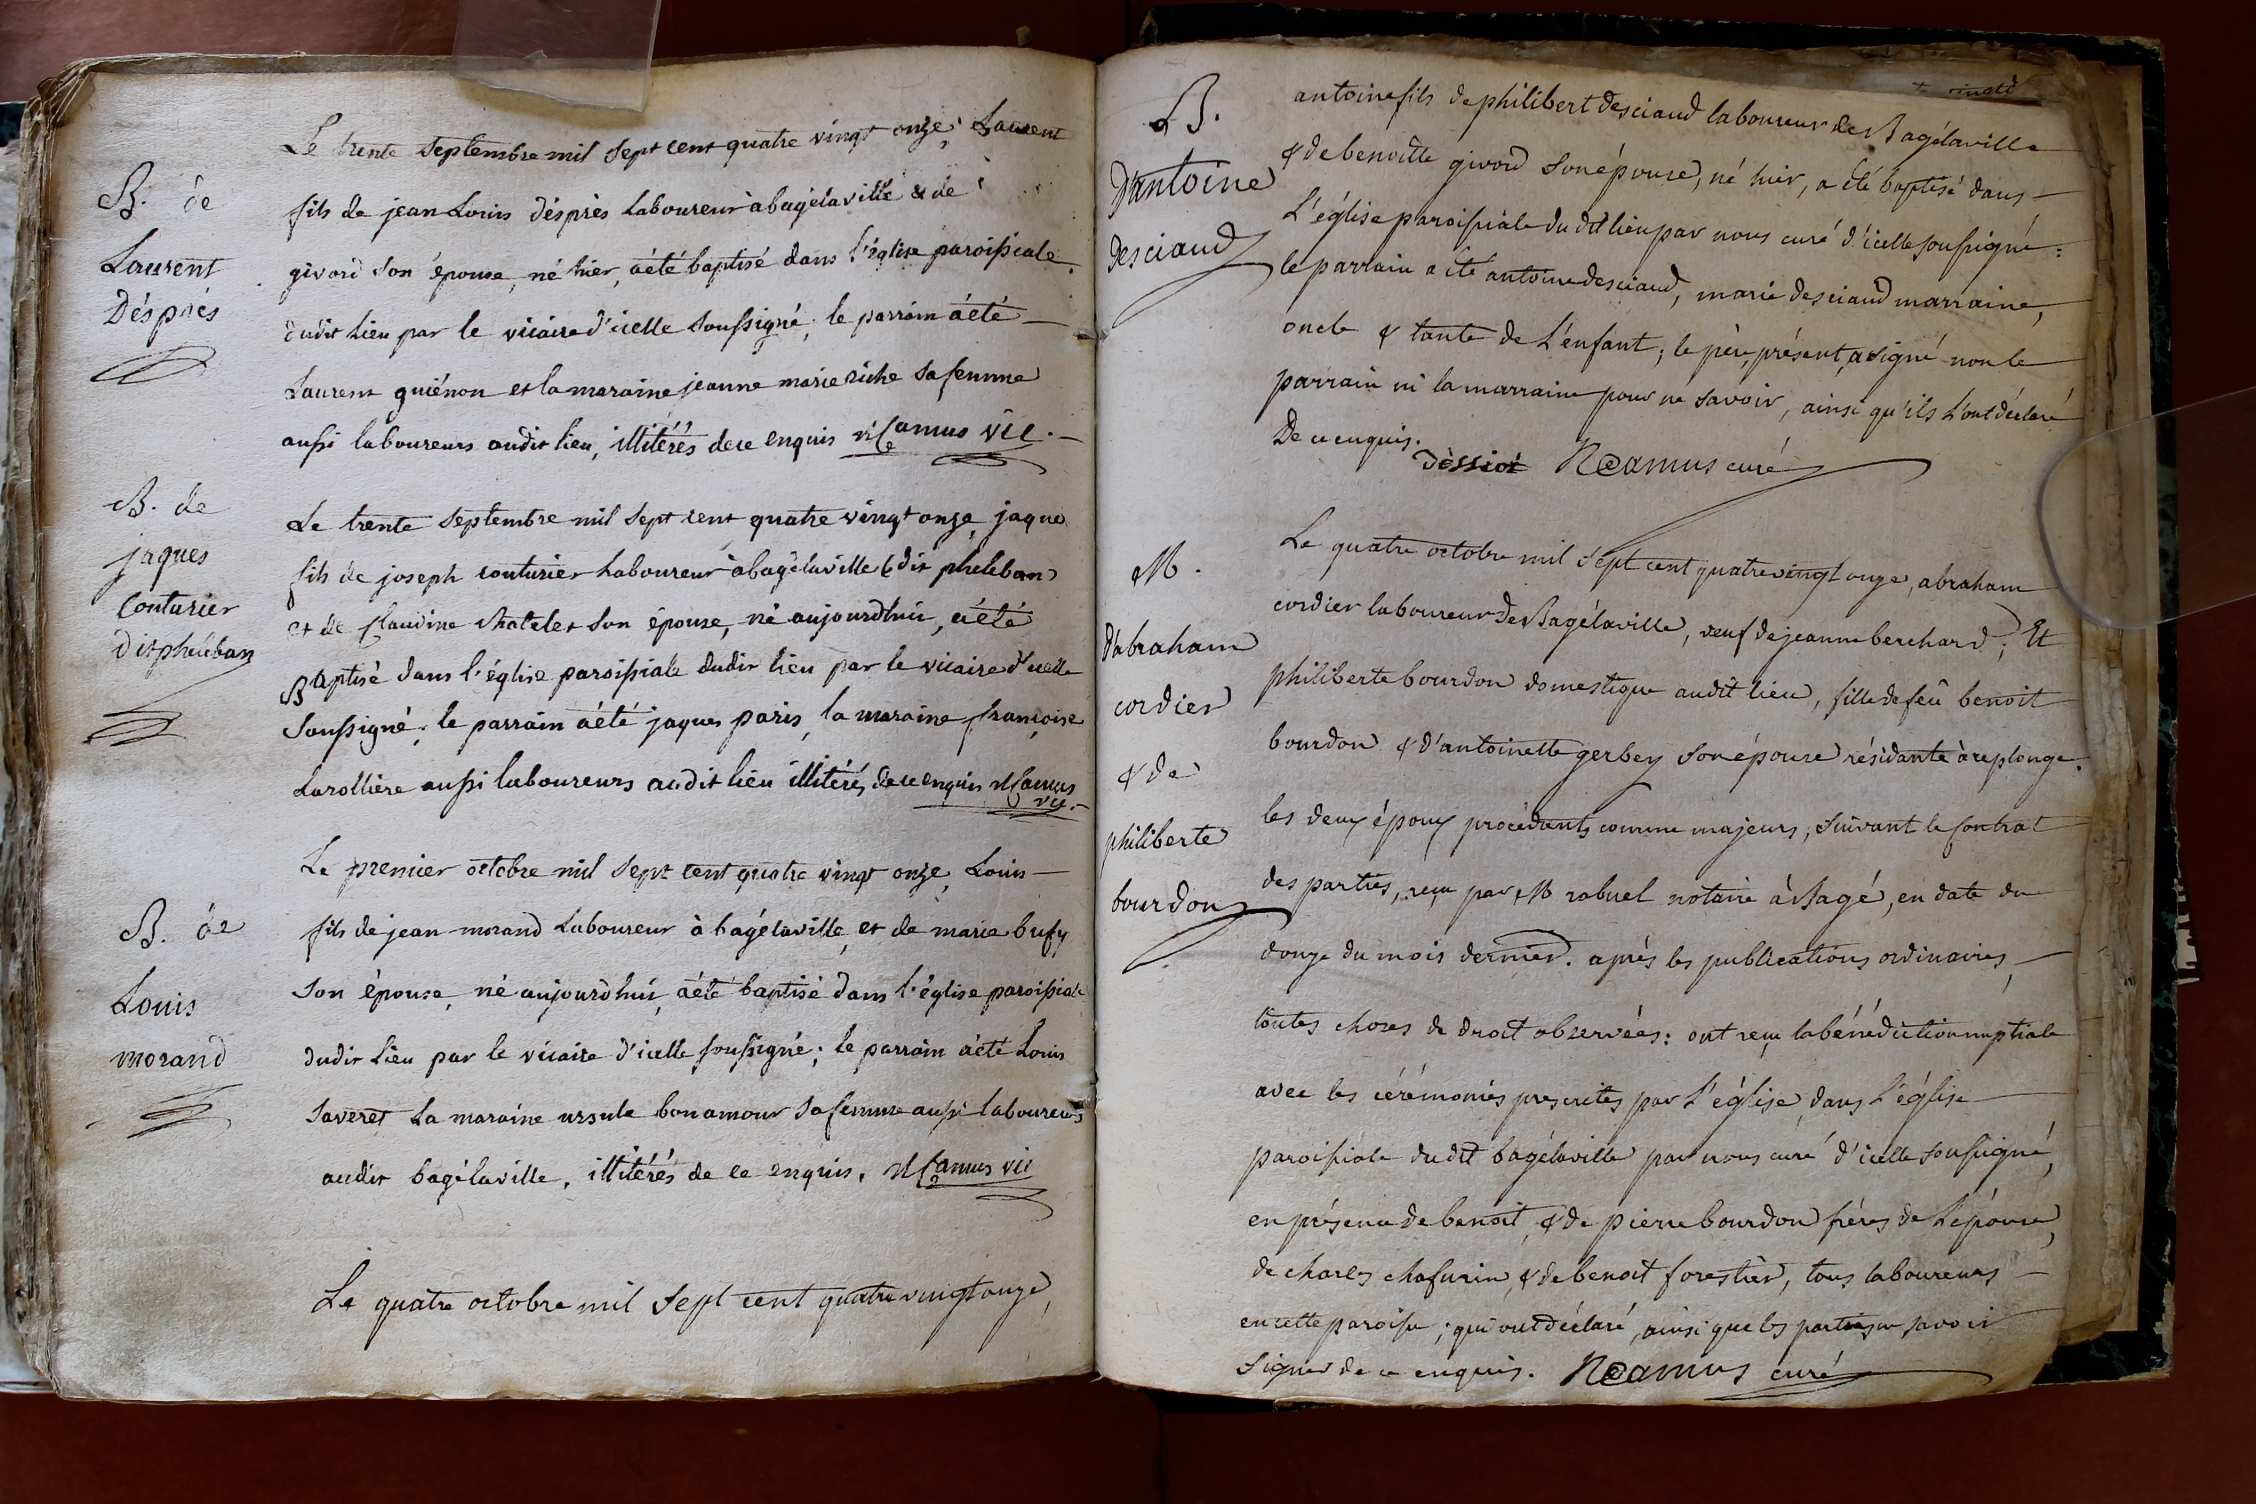 Le trente septembre mil sept cent quatre vingt onze, Laurent
B. de
fils de jean Louis désprès Laboureur à bagélaville & de
Laurent
givord son épouse, né hier, a été baptisé dans l'église paroissiale
Désprés
dudit Lieu par le vicaire d'icelle soussigné; le parrain a été
Laurent guiénon et la maraine jeanne marie riche sa femme
aussi laboureurs audit lieu, illitérés de ce enquis Camus vic.
B. de
jaques
Couturier
dit pheléban
Le trente septembre mil sept cent quatre vingt onze, jaque
fils de joseph couturier Laboureur à bagélaville dit pheleban
et de Claudine Chatelet son épouse, né aujourd'hui, a été
Baptisé dans l'église paroissiale dudit lieu par le vicaire d'icelle
soussigné; le parrain a été jaques paris, la maraine françoise
Larollière aussi laboureurs audit lieu illitérés de ce enquis Camus
vic.
B. de
Louis
morand
Le premier octobre mil sept cent quatre vingt onze, Louis
fils de jean morand Laboureur à bagélaville, et de marie bufy
son épouse, né aujourd'hui, a été baptisé dans l'église paroissiale
dudit Lieu par le vicaire d'icelle soussigné; le parrain a été Louis
saveret La maraine ursule bonamour sa femme aussi laboureurs
audit bagélaville, illitérés de ce enquis. Camus vic
Le quatre octobre mil sept cent quatre vingt onze,
B.
D'antoine
Desciaud
antoine fils de philibert Desciaud laboureur de Bagélaville
& de benoitte givord son épouse, né hier, a été baptisé dans
L'église paroissiale du dit lieu par nous curé d'icelle soussigné:
le parrain a été antoine desciaud, marie desciaud marraine,
oncle & tante de L'enfant; le père, présent, a signé non le
parrain ni la marraine pour ne savoir, ainsi qu'ils L'ont déclaré
De ce enquis.
Camus curé
M.
D'abraham
cordier
& de
philiberte
bourdon
Le quatre octobre mil sept cent quatre vingt onze, abraham
cordier laboureur de Bagélaville, veuf de jeanne berchard; Et
philiberte bourdon domestique audit lieu, fille de feû benoit
bourdon & d'antoinette gerbey son épouse résidante à replonge.
les deux époux procédants comme majeurs, suivant le Contrat
des parties, reçu par M rabuel notaire à Bagé, en date du
douze du mois dernier. après les publications ordinaires,
toutes choses de droit observées: ont reçu la bénédiction nuptiale
avec les cérémonies prescrites par L'église, dans L'église
paroissiale du dit bagélaville par nous curé d'icelle soussigné,
en présence de benoit, & de pierre bourdon frères de L'épouse,
de charles chafurin, & de benoit forestier, tous laboureurs
en cette paroisse; qui ont déclaré, ainsi que les parties ne savoir
signer de ce enquis. Camus curé